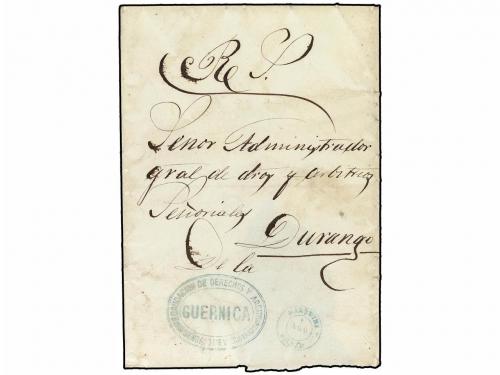 R. S.
Senor Administrador
gral de dros y arbitrios
Señoriales
Durango
De la
RECAUDACION DE DERECHOS Y ARBITRIOS
GUERNICA